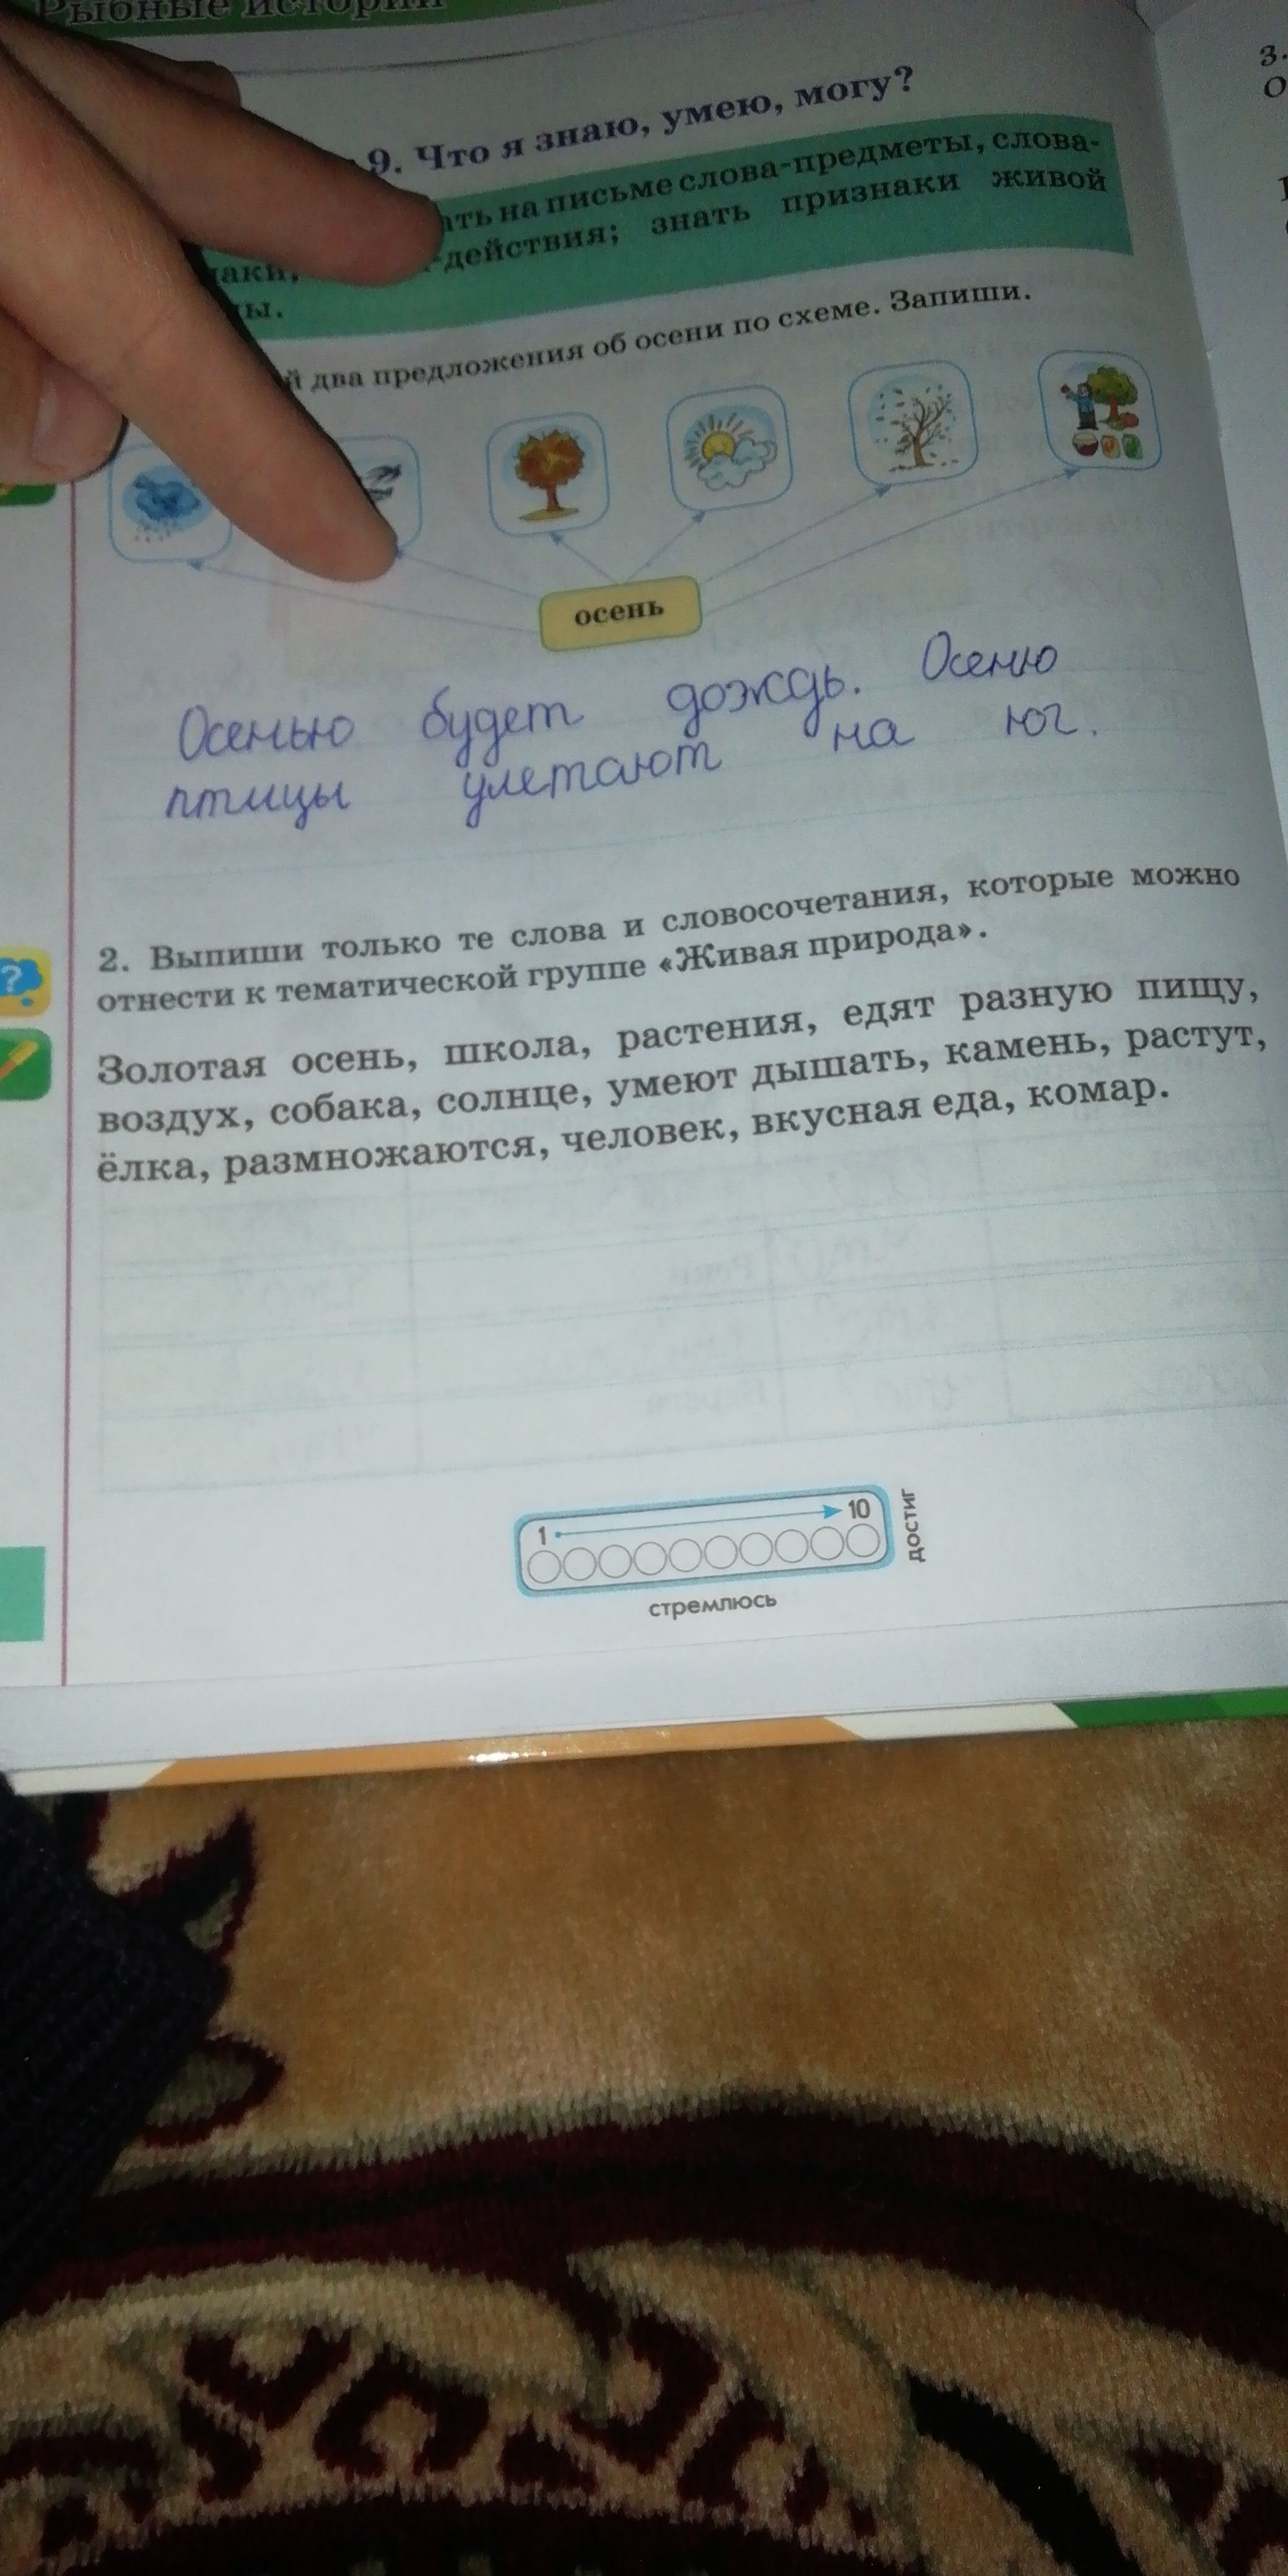 Рыбные истории
9. Что я знаю, умею, могу?
на письме слова-предметы, слова-
-действия; знать признаки живой
два предложения об осени по схеме. Запиши.
осень
Осенью будет дождь. Осеню
птицы улетают на юг.
2. Выпиши только те слова и словосочетания, которые можно
отнести к тематической группе «Живая природа».
Золотая осень, школа, растения, едят разную пищу,
воздух, собака, солнце, умеют дышать, камень, растут,
ёлка, размножаются, человек, вкусная еда, комар.
1 10
достиг
стремлюсь
3.